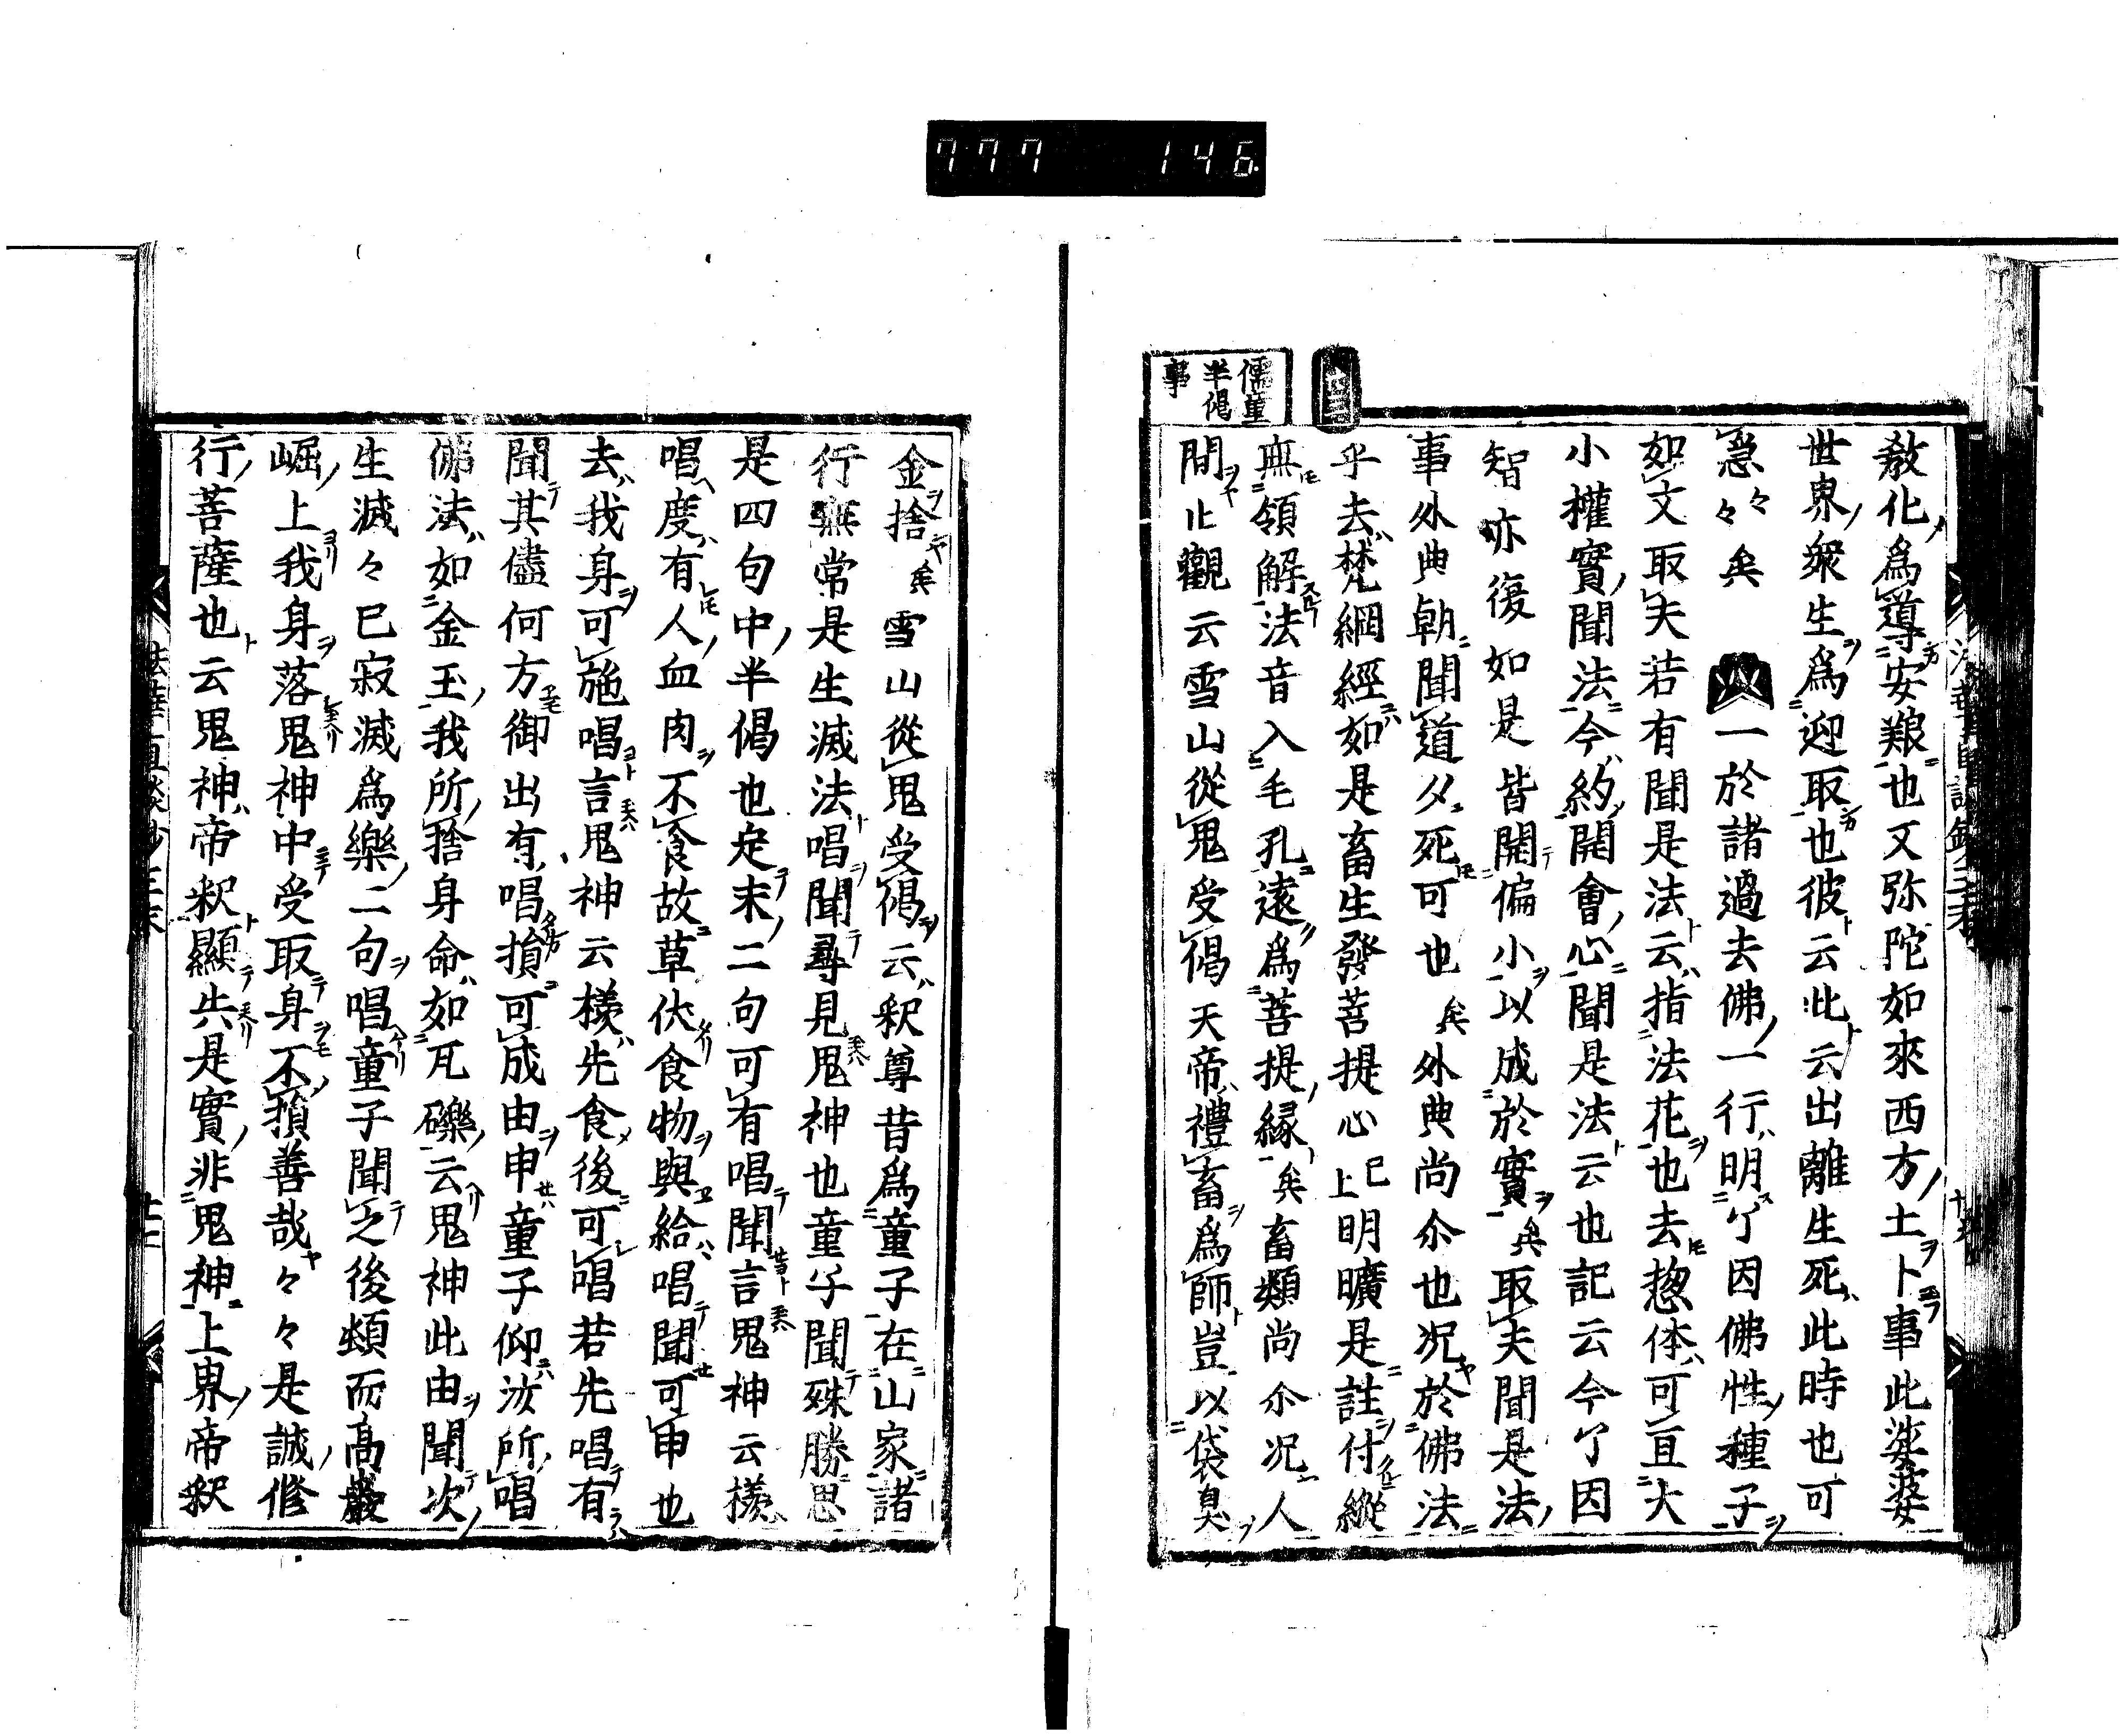 777 146
儒童
半偈
事
教化為導安艱也又弥陀如來西方土卜事此娑婆
世界衆生為迎取也彼云此云出離生死此時也可
急々々矣 一於諸過去佛一行明了因佛性種子
如文取夫若有聞是法云指法花也去惣体可亘大
小權實聞法今約開會心聞是法云也記云今了因
智亦復如是皆開偏小以成於實矣取夫聞是法
事外典朝聞道夕死可也矣外典尚尒也况於佛法
乎去梵網經如是畜生發菩提心已上明曠是註付縱
無領解法音入毛孔遠為菩提縁矣畜類尚尒况人
間止觀云雪山從鬼受偈天帝禮畜為師豈以袋臭
金捨矣 雪山從鬼受偈云釈尊昔為童子在山家諸
行無常是生滅法唱聞尋見鬼神也童子聞殊勝思
是四句中半偈也定末二句可有唱聞言鬼神云樣
唱度有人血肉不食故草伏食物與給唱聞可申也
去我身可施唱言鬼神云樣先食後可唱若先唱有
聞其儘何方御出有唱損可成由申童子仰汝所唱
佛法如金玉我所捨身命如瓦礫云鬼神此由聞次
生滅々已寂滅為樂二句唱童子聞之後頻而高巖
崛上我身落鬼神中受取身不損善哉々々是誠修
行菩薩也云鬼神帝釈顯共是實非鬼神上界帝釈
法華直談鈔三末 廿二